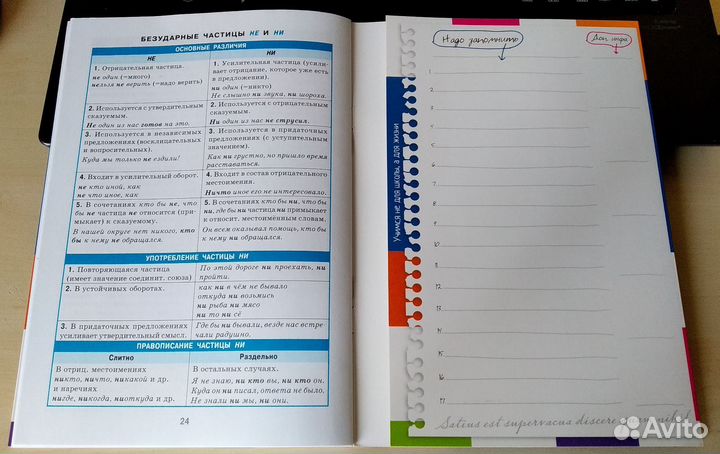 БЕЗУДАРНЫЕ ЧАСТИЦЫ НЕ И НИ
ОСНОВНЫЕ РАЗЛИЧИЯ
НЕ
1. Отрицательная частица.
не один (=много)
нельзя не верить (=надо верить)
2. Используется с утвердительным
сказуемым.
Не один из нас готов на это.
3. Используется в независимых
предложениях (восклицательных
и вопросительных).
Куда мы только не ездили!
4. Входит в усилительный оборот.
не кто иной, как
не что иное, как
5. В сочетаниях кто бы не, что
бы не частица не относится (при-
мыкает) к сказуемому.
В нашей округе нет никого, кто
бы к нему не обращался.
НИ
1. Усилительная частица (усили-
вает отрицание, которое уже есть
в предложении).
ни один (=никто)
Не слышно ни звука, ни шороха.
2. Используется с отрицательным
сказуемым.
Ни один из нас не струсил.
3. Используется в придаточных
предложениях (с уступительным
значением).
Как ни грустно, но пришло время
расставаться.
4. Входит в состав отрицательного
местоимения.
Ничто иное его не интересовало.
5. В сочетаниях кто бы ни, что бы
ни, где бы ни частица ни примыкает
к относит. местоименным словам.
Он всем оказывал помощь, кто бы
к нему ни обращался.
УПОТРЕБЛЕНИЕ ЧАСТИЦЫ НИ
1. Повторяющаяся частица
(имеет значение соединит. союза)
По этой дороге ни проехать, ни
пройти.
2. В устойчивых оборотах.
как ни в чём не бывало
откуда ни возьмись
ни рыба ни мясо
ни то ни сё
3. В придаточных предложениях
усиливает утвердительный смысл.
Где бы ни бывали, везде нас встре-
чали радушно.
ПРАВОПИСАНИЕ ЧАСТИЦЫ НИ
Слитно
В отриц. местоимениях
никто, ничто, никакой и др.
и наречиях
нигде, никогда, ниоткуда и др.
Раздельно
В остальных случаях.
Я не знаю, ни кто вы, ни кто он.
Куда он ни писал, ответа не было.
Не знали ни мы, ни они.
24
Надо запомнить
Учимся не для школы, а для жизни
1
2
3
4
5
6
7
8
9
10
11
12
13
14
15
16
17
Satius est supervacua discere
Avito